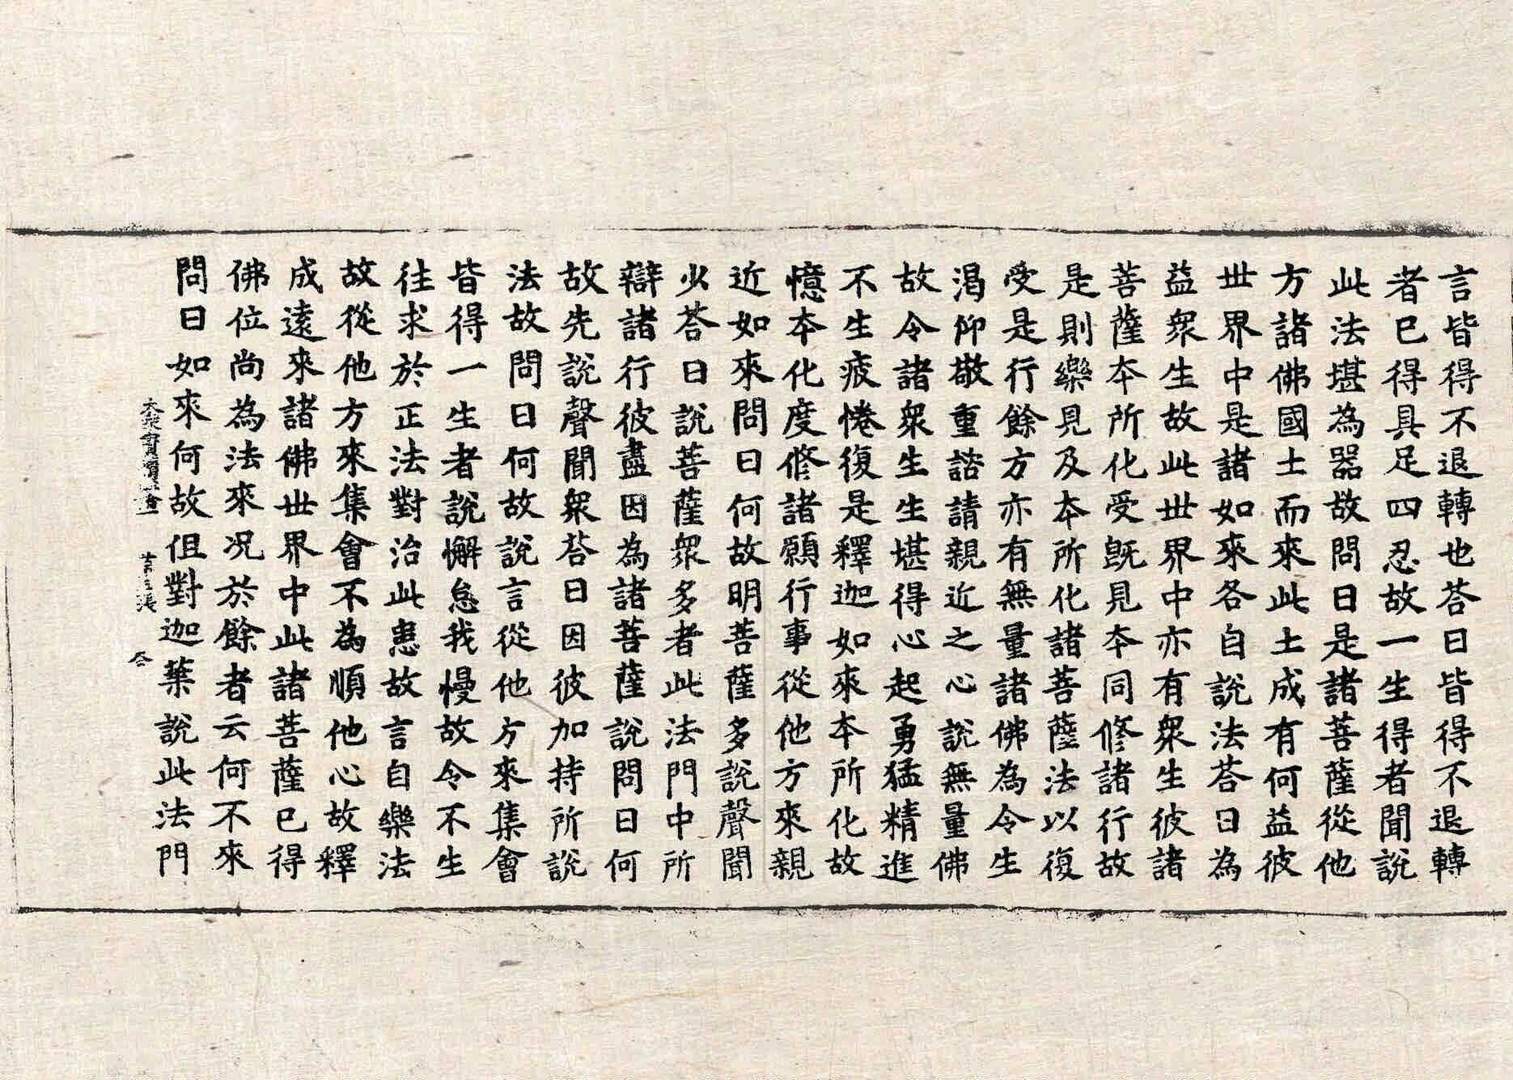 言皆得不退轉也荅曰皆得不退轉
者已得具足四忍故一生得者聞說
此法堪為器故問曰是諸菩薩從他
方諸佛國土而來此土成有何益彼
世界中是諸如來各自說法荅曰為
益衆生故此世界中亦有衆生彼諸
菩薩本所化受既見本同修諸行故
是則樂見及本所化諸菩薩法以復
受是行餘方亦有無量諸佛為令生
渴仰敬重諮請親近之心說無量佛
故令諸衆生生堪得心起勇猛精進
不生疲惓復是釋迦如來本所化故
憶本化度修諸願行事從他方來親
近如來問曰何故明菩薩多說聲聞
少荅曰說菩薩衆多者此法門中所
辯諸行彼盡因為諸菩薩說問曰何
故先說聲聞衆荅曰因彼加持所說
法故問曰何故說言從他方來集會
皆得一生者說懈怠我慢故令不生
往求於正法對治此患故言自樂法
故從他方來集會不為順他心故釋
成遠來諸佛世界中此諸菩薩已得
佛位尚為法來况於餘者云何不來
問曰如來何故但對迦葉說此法門